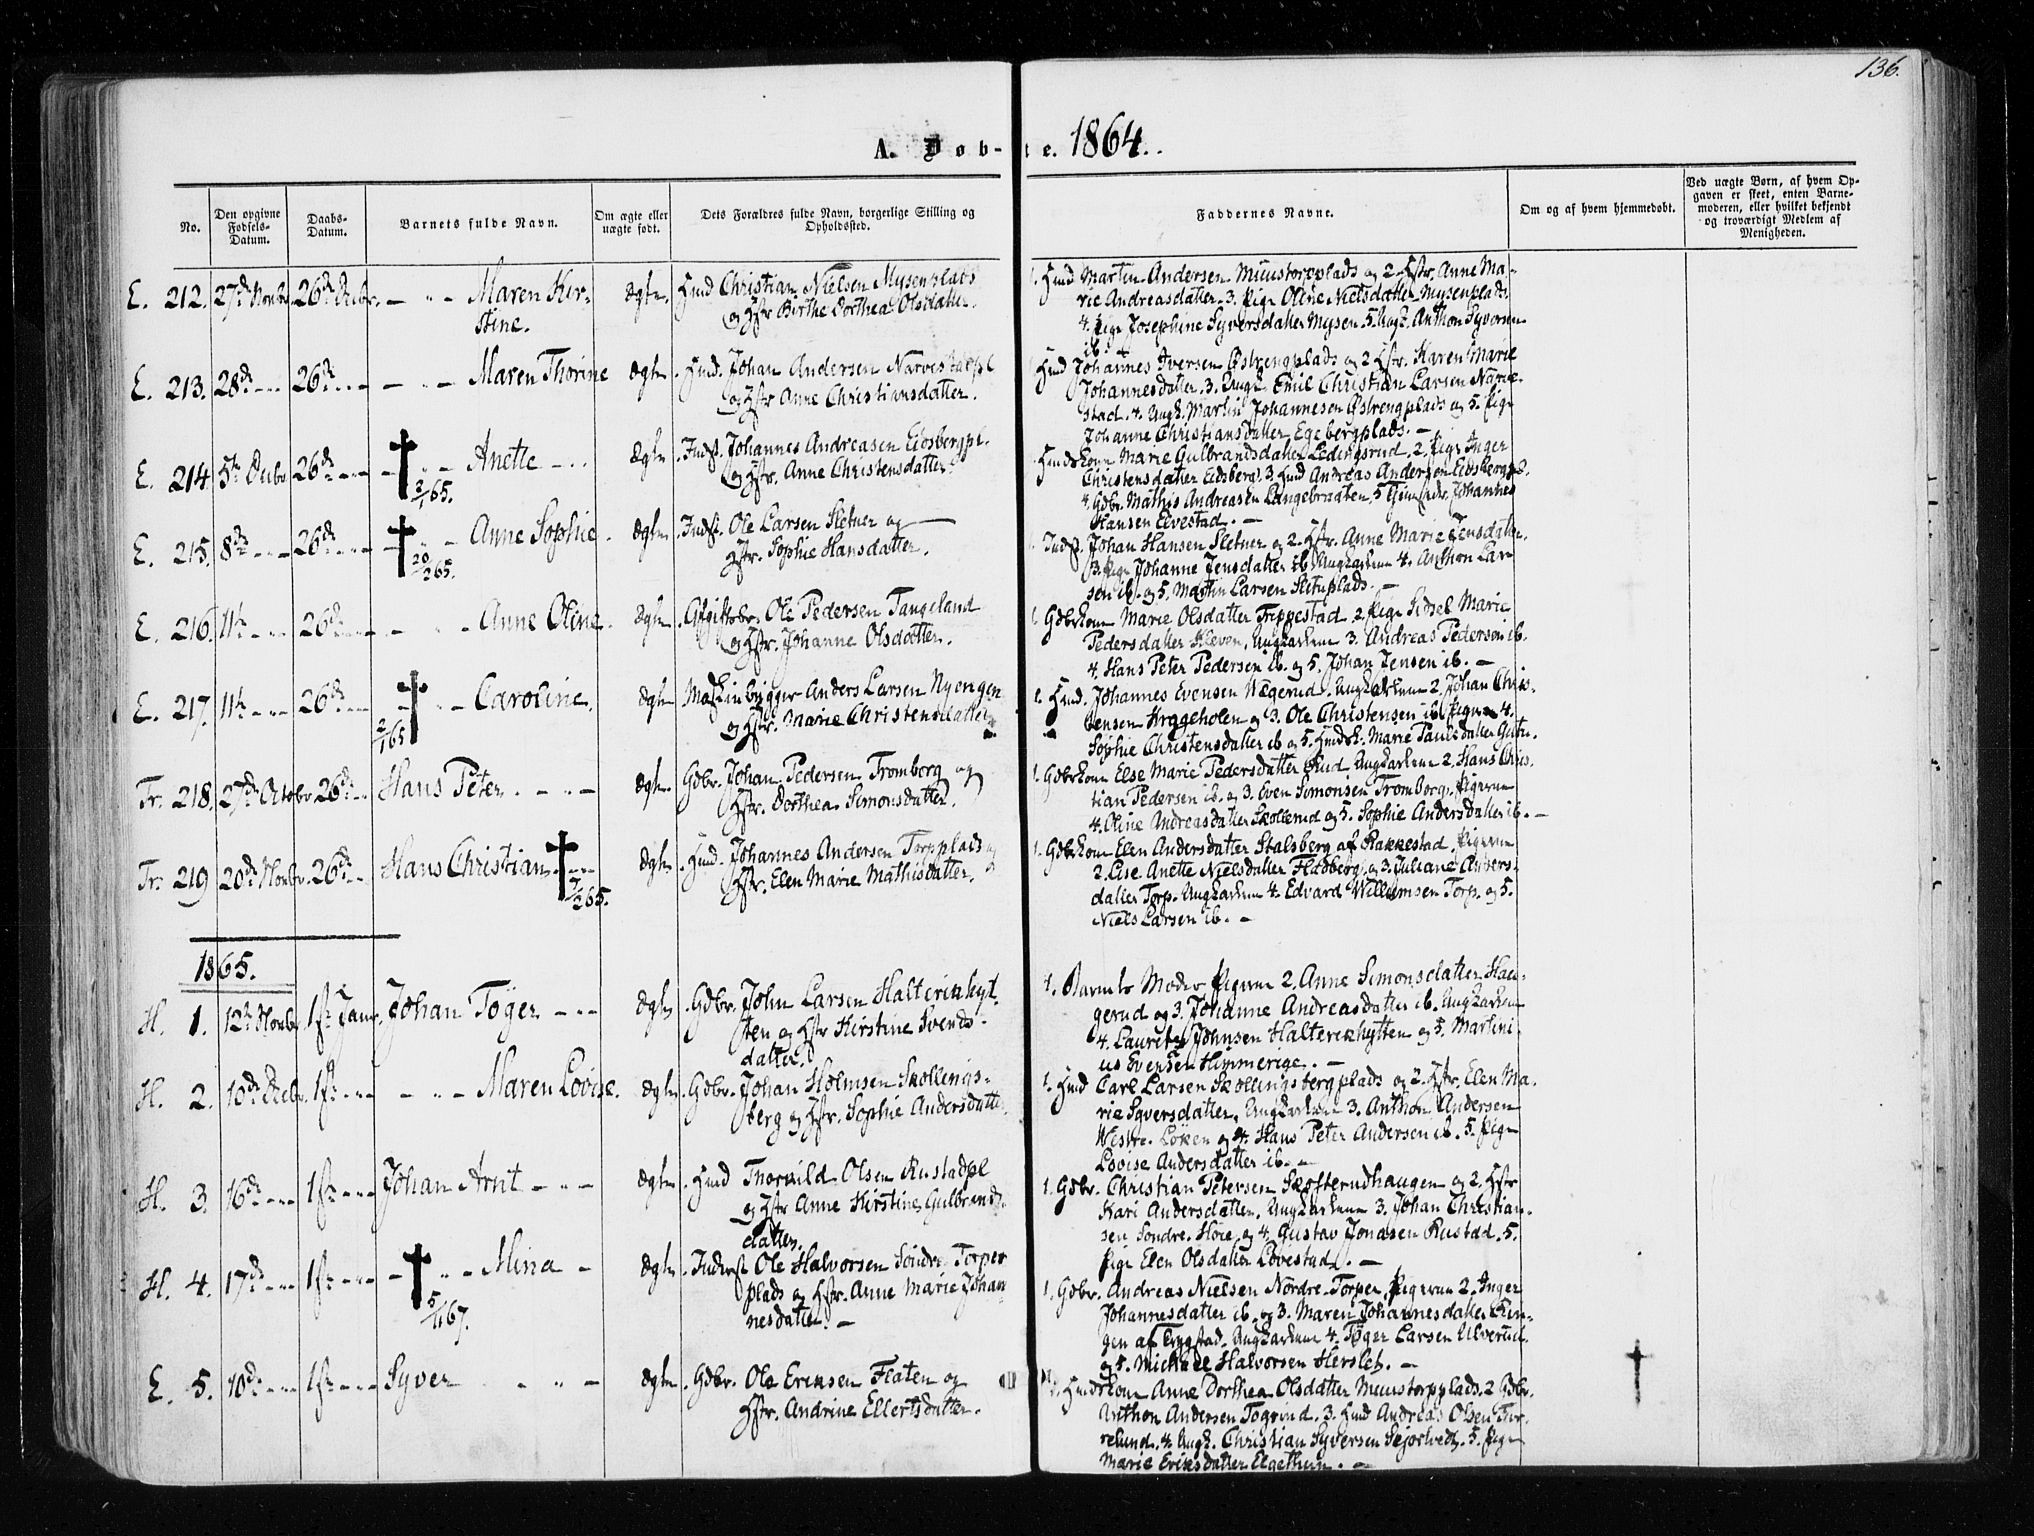 136.
A. Døb- te. 1864.
No.
Den opgivne Fødsels-Datum.
Daabs-Datum.
Barnets fulde Navn.
Om ægte eller uægte født.
Dets Forældres fulde Navn, borgerlige Stilling og Opholdssted.
Faddernes Navne.
Om og af hvem hjemmedøbt.
Ved uægte Børn, af hvem Op-
gaven er skeet, enten Barne-
moderen, eller hvilket bekjendt
og troværdigt Medlem af
Menigheden.
E. 212. 27de Novbr 26de Decbr. Maren Kir- Ægte. Hmd Christian Nielsen Mysenplads
stine. og Hstr Birthe Dorthea Olsdatter.
1. Hmd Martin Andersen Muustorpplads og 2. Hstr. Anne Ma-
rie Andreasdatter. 3. Pige Oline Nielsdatter Mysenplads.
4. Pige Josephine Syversdatter Mysen. 5. Ungk. Anthon Syversen
ib.
E. 213. 28de 26de Maren Thorine Ægte. Hmd. Johan Andersen Narvestadpl
og Hstr Anne Christiansdatter.
Hmd Johannes Iversen Østrengplads og 2 Hstr. Karen Marie
Johannesdatter. 3. Ungk. Emil Christian Larsen Narve-
stad. 4. Ungk. Martin Johannesen Østrengplads og 5. Pige
Johanne Christiansdatter Egebergplads.
E. 214. 5te Decbr 26de Anette Ægte. Indst. Johannes Andreasen Eidsbergpl.
2/1 65. og Hstr. Anne Christensdatter.
Hmdskone Marie Gulbrandsdatter Ledingsrud. 2. Pige Inger
Christensdatter Eidsberg. 3. Hmd Andreas Andersen Eidsbergpl.
4. Gdbr. Mathis Andreasen Langebraaten. 5 Johannes
Hansen Elvestad.
E. 215. 8de 26de Anne Sophie. Ægte. Indst. Ole Larsen Sletner og
20/2 65. Hstr. Sophie Hansdatter.
Indst. Johan Hansen Sletner og 2. Hstr. Anne Marie Jensdatter.
3. Pige Johanne Jensdatter ib. Ungkarlene 4. Anthon Lar-
sen ib. og 5. Martin Larsen Sletnplads.
E. 216. 11te 26de Anne Oline. Ægte. Afgiftsbr. Ole Pedersen Tangeland
og Hstr. Johanne Olsdatter.
1. Gdbrkone Marie Olsdatter Treppestad. 2. Pige Sidsel Marie
Pedersdatter Kleven. Ungkarlene 3. Andreas Pedersen ib.
4. Hans Peter Pedersen ib. og 5. Johan Jensen ib.
E. 217. 11te 26de Caroline. Ægte Maskinbrigger Anders Larsen Nyengen
2/1 65 og Hstr. Marie Christensdatter.
1. Hmd. Johannes Evensen Wegerud. Ungkarlene 2. Johan Chris-
tensen Kryggeholen og 3. Ole Christensen ib. Pigerne 4.
Sophie Christensdatter ib og 5. Hmdsk. Marie Paulsdatter
Tr. 218. 27de Octobr 26de Hans Peter. Ægte. Gdbr. Johan Pedersen Tromberg og
Hstr. Dorthea Simonsdatter.
1. Gdbrkone Else Marie Pedersdatter Rud Ungkarlene 2. Hans Chris-
tian Pedersen ib. og 3. Even Simonsen Tromborg. Pigerne
4. Oline Andreasdatter Skollerud og 5. Sophie Andersdatter ib.
Tr. 219 20de Novbr. 26de Hans Christian Ægte. Hmd. Johannes Andersen Torpplads og
7/2 65. Hstr. Elen Marie Mathisdatter.
1. Gdbrkone Elen Andersdatter Stalsberg af Rakkestad. Pigerne
2. Lise Anette Nielsdatter Fladberg. og 3. Juliane Anders-
datter Torp. Ungkarlene 4. Edvard Willumsen Torp. og 5.
Niels Larsen ib.
1865.
H. 1. 12te Novbr. 1ste Janr. Johan Tøger Ægte. Gdbr. John Larsen Halterikhyt-
ten og Hstr Kirstine Svends-
datter.
1. Barnets Moder Pigerne 2. Anne Simonsdatter Hau-
gerud og 3. Johanne Andreasdatter ib. Ungkarlene
4. Lauretz Johnsen Halterikhytten og 5. Martini-
us Evensen Himmerige.
H. 2. 10de Decbr. 1ste Maren Lovise. Ægte. Gdbr. Johan Holmsen Skollings-
berg og Hstr. Sophie Andersdatter.
1. Hmd Carl Larsen Skollingsbergplads og 2. Hstr. Elen Ma-
rie Syversdatter. Ungkarlene 3. Anthon Andersen
Westre Løken og 4. Hans Peter Andersen ib. 5. Pige
Lovise Andersdatter ib.
H. 3. 16de 1ste Johan Arnt Ægte. Hmd Thorvild Olsen Rustadpl
og Hstr Anne Kirstine Gulbrands-
datter.
1. Gdbr. Christian Petersen Skofterudhaugen og 2. Hstr
Kari Andersdatter. Ungkarlene 3. Johan Christian-
sen Søndre Høie og 4. Gustav Jonasen Rustad. 5.
Pige Elen Olsdatter Lovestad.
H. 4. 17de 1ste Mina Ægte. Inderst Ole Halvorsen Søndre Torper
5/11 67. plads og Hstr. Anne Marie Johan-
nesdatter.
1. Gdbr. Andreas Nielsen Nordre Torper, Pigerne 2. Inger
Johannesdatter ib. og 3. Maren Johannesdatter
gen af Trygstad. Ungkarlene 4. Tøger Larsen Ulverud.
og 5. Michael Halvorsen Herslet.
E. 5. 10de 1ste Syver Ægte. Gdbr. Ole Eriksen Flaten og
Hstr. Andrine Ellertsdatter.
1. Hmdskone Anne Dorthea Olsdatter Muustorpplads. 2 Gdbr.
Anthon Andersen Togrind. 3. Hmd Andreas Olsen
relund. 4. Ungk. Christian Syversen Sejortvedt. 5. Pige
Marie Eriksdatter Elgethun.